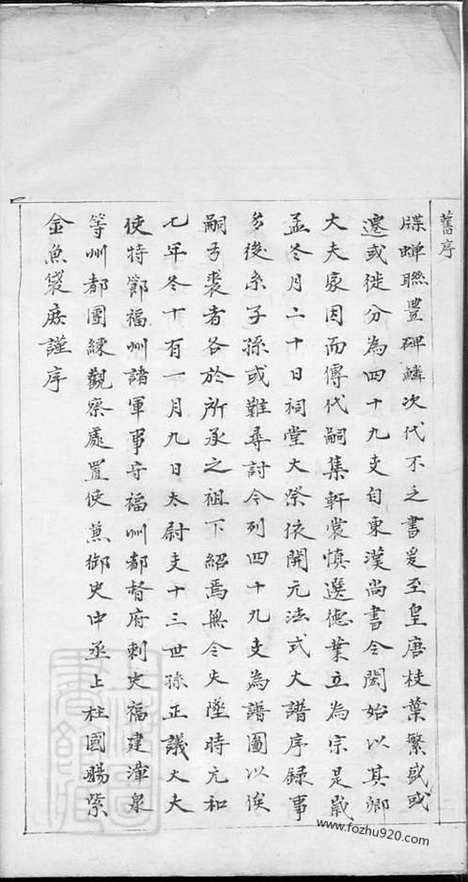 舊序
牒蟬聯豊碑鱗次代不乏書爰至皇唐枝葉繁盛或
遷或徙分為四十九支自東漢尚書令閎始以其鄉
大夫家因而傳代嗣集軒裳慎選德業立為宗是歲
孟冬月二十日祠堂大祭依開元法式大譜序録事
多後系子孫或難尋討今列四十九支為譜圖以俟
嗣子裘者各於所承之祖下紹焉無令失墜時元和
七年冬十有一月九日太尉支十三世孫正議大夫
使持節福州諸軍事守福州都督府刺史福建漳泉
等州都團練觀察處置使兼御史中丞上柱國賜紫
金魚袋庡謹序
www.fozhu920.com